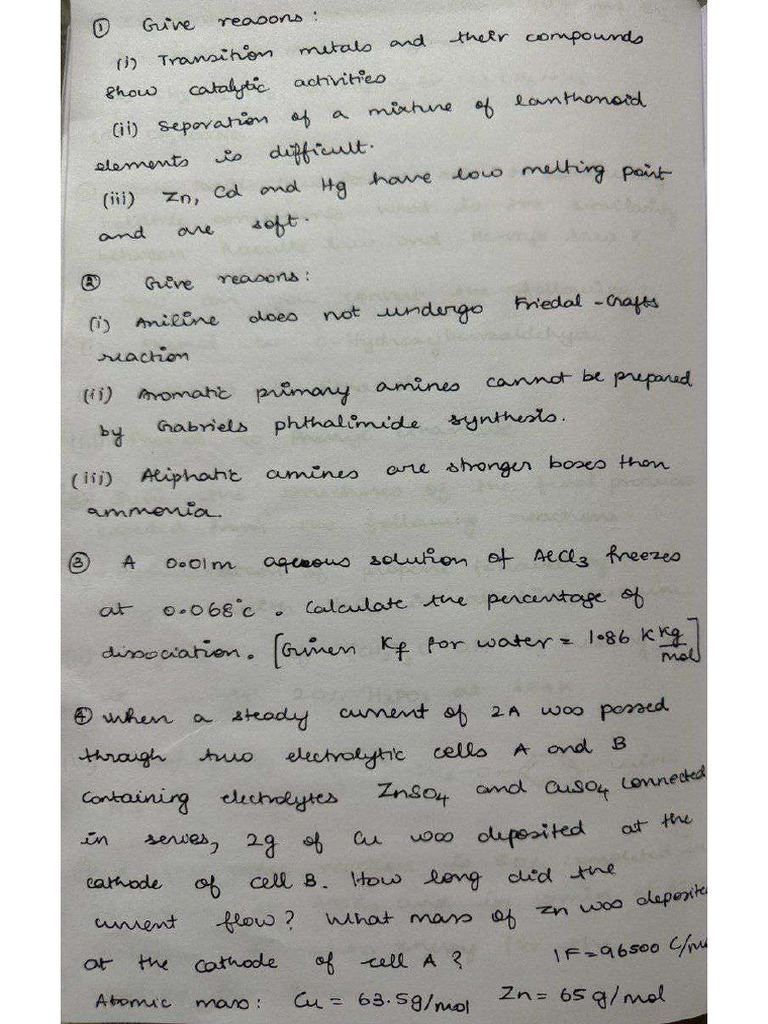 ① Give reasons:
(i) Transition metals and their compounds
show catalytic activities
(ii) Separation of a mixture of lanthonoid
elements is difficult.
(iii) Zn, Cd and Hg have low melting point
and are soft.
② Give reasons:
(i) Aniline does not undergo Friedal-Crafts
reaction
(ii) Aromatic primary amines cannot be prepared
by Gabriels phthalimide synthesis.
(iii) Aliphatic amines are stronger bases than
ammonia.
③ A 0.01m aqeous solution of AlCl3 freezes
at 0.068°C. Calculate the percentage of
dissociation. [Given Kf for water = 1.86 K kg/mol]
④ When a steady current of 2A was passed
through two electrolytic cells A and B
containing electrolytes ZnSO4 and CuSO4 connected
in series, 2g of Cu was deposited at the
cathode of cell B. How long did the
current flow? What mass of Zn was deposite
at the cathode of cell A? 1F=96500 C/mo
Atomic mass: Cu = 63.5g/mol Zn = 65g/mol